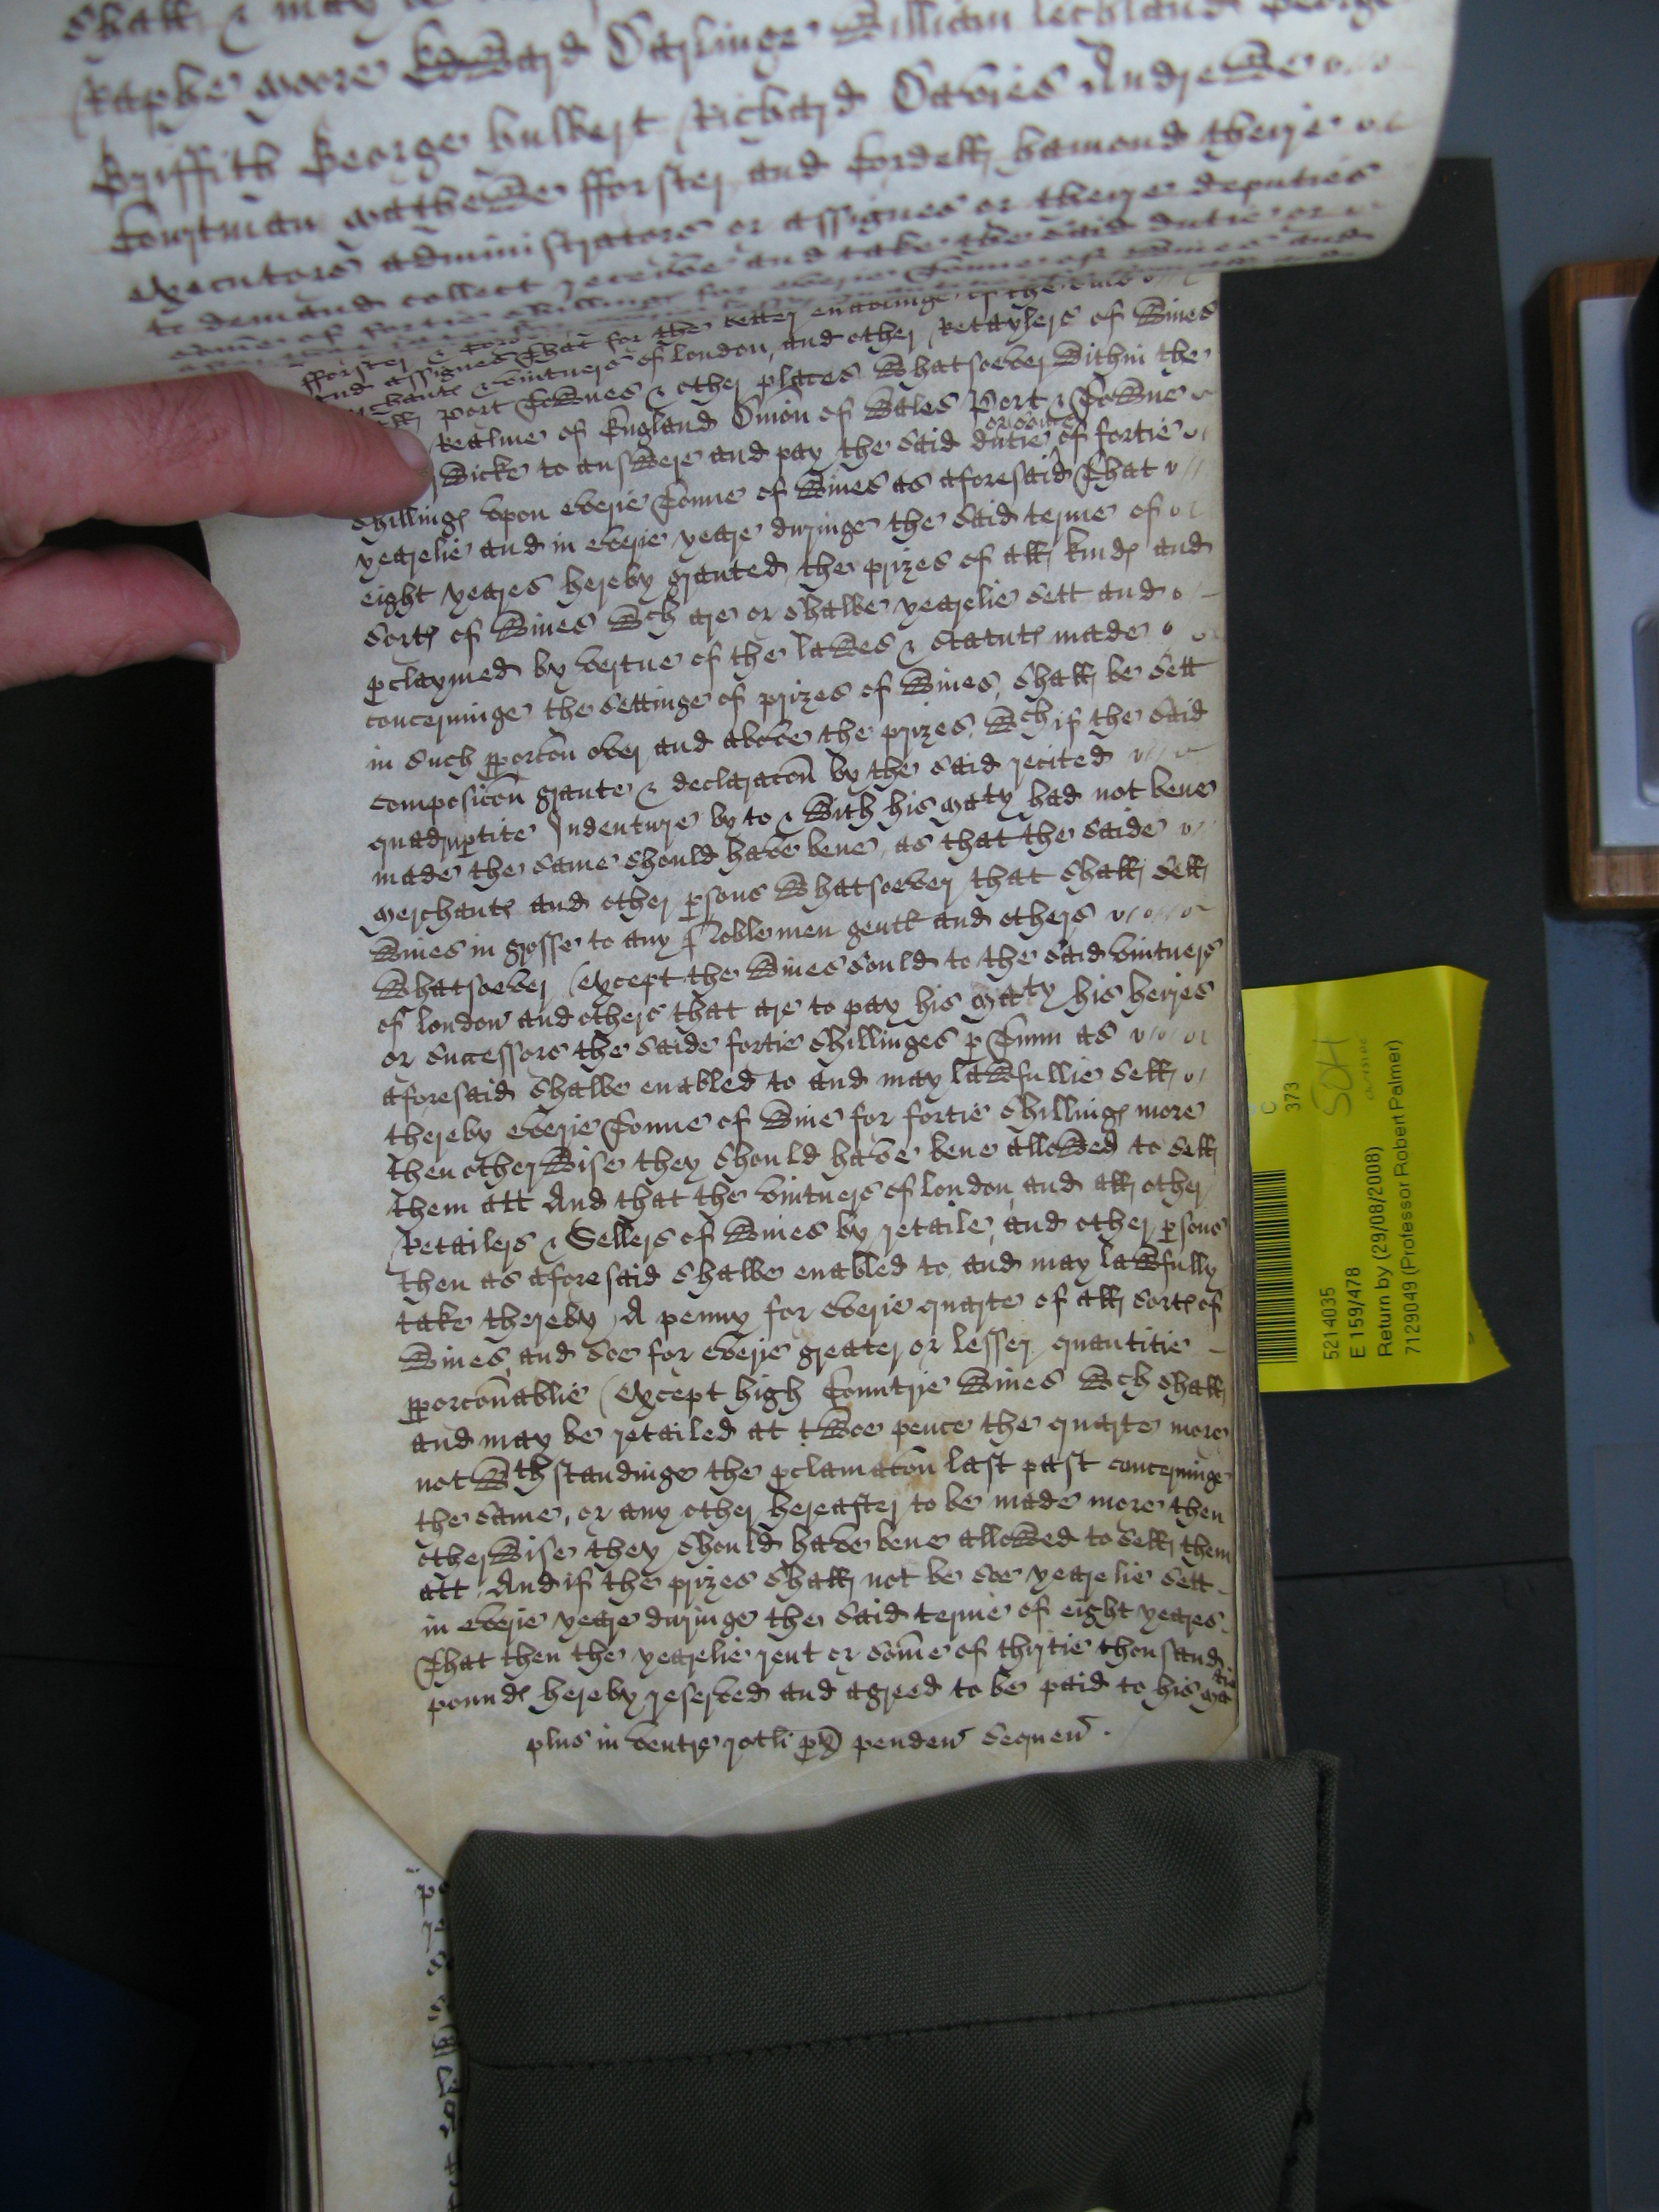 shall & may
Raphe Moore Edward Darlinge William Lechland George
Griffith George Bulbert Richard Davies Andrewe
Courtman Mathewe fforster and Cordell Hamond theire
executors administrators or assignes or theire deputies
to demand collect receeve and take the said dutie or
some of fortie shillings for everie Tonne of Wines and
fforster &
and assignes That for the better enablinge of the said
& vintners of London, and other Retaylers of Wines
port Townes & other places whatsoever within the
Realme of England Dmion of Wales Port & Towne
Wicke to answere and pay the said dutie or some of fortie
shilling upon everie Tonne of Wines as aforesaid That
yearelie and in everie yeare duringe the said terme of
eight yeares hereby graunted, the prizes of all kind and
sort of Wines Wch are or shalbe yearelie sett and
pclaymed by vertue of the lawes & statut made
concerninge the settinge of prizes of Wines, shall be sett
in such pporcon over and above the prizes, Wch if the said
composicon graunte & declaracon by the said recited
quadruptite Indenture by to & with his Maty had not bene
made the same should have bene, as that the saide
Merchant and other psons whatsoever that shall sell
Wines in grosse to any Noblemen gentl and others
whatsoever (except the Wines sould to the said vintners
of London and others that are to pay his Maty his heires
or successors the saide fortie shillinges p Tunn as
aforesaid shalbe enabled to and may lawfullie sell
thereby everie Tonne of Wine for fortie shilling more
then otherwise they should have bene allowed to sell
them att And that the vintners of London and all other
Retailers & Sellers of Wines by retaile, and other psons
then as aforesaid shalbe enabled to and may lawfully
take thereby A penny for everie quarte of all sort of
Wines and soe for everie greater or lesser quantitie
pporconablie (except high Countrie Wines Wch shall
and may be retailed at twoe pence the quarte more
notWthstandinge the pclamacon last past concerninge
the same, or any other hereafter to be made more then
otherwise they should have bene allowed to sell them
att And if the prizes shall not be soe yearelie sett
in everie yeare duringe the said terme of eight yeares
That then the yearelie rent or some of thirtie thousand
pound hereby reserved and agreed to be paid to his Matie
plus in ventre rotli px penden sequen
C
373
SDH
5214035
E 159/478
Return by (29/08/2008)
7129049 (Professor Robert Palmer)